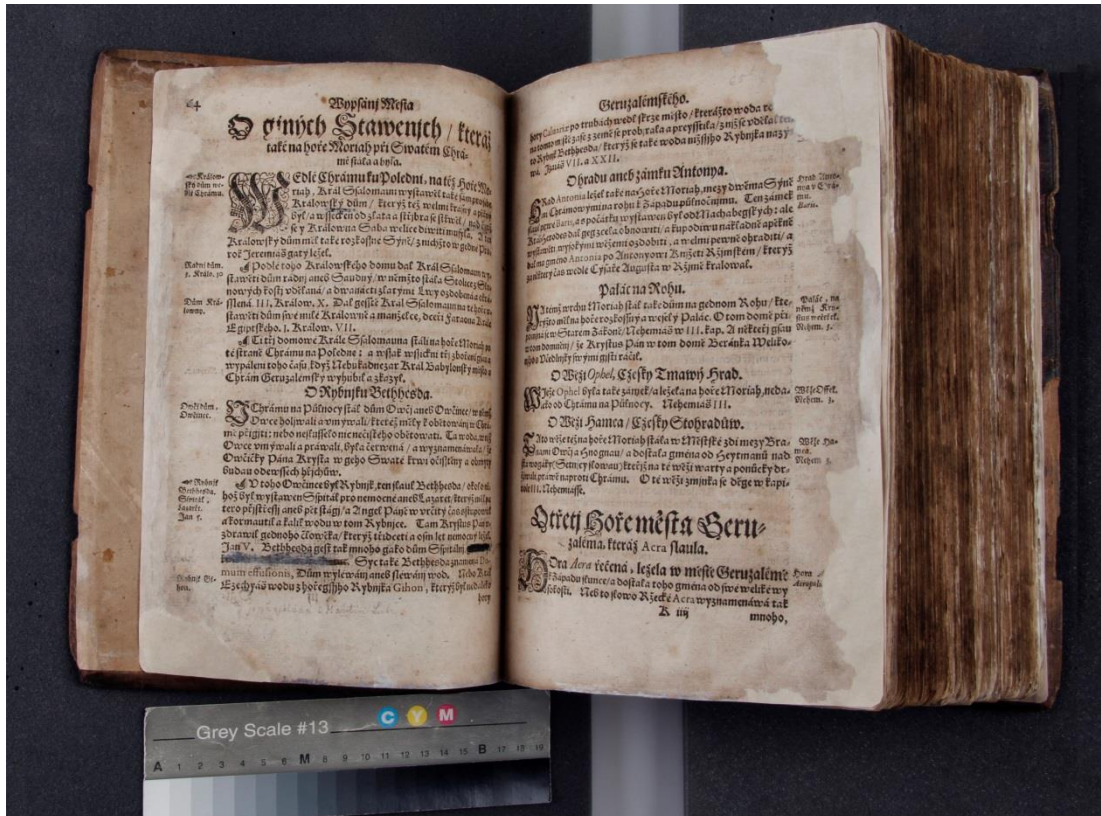 64
Wypsánj Města
O giných Staweních / kteráž
také na hoře Moriah při Swatém Chrá-
mě stála a byla.
Králow-
ský dům ne-
WEdlé Chrámu ku Poledni, na též Hoře Mo-
riah, Král Ssalomaun wystawěl také sám pro sebe
Králowský dům / kterýž též welmi krásný a pěkný
byl / a wssecken od zlata a střjbra se stkwěl / nad čjmž
se y Králowna Saba welice diwiti musyla. A ten
Králowský dům měl také rozkossné Syně / z nichžto w gedné Pro-
rok Jeremiáš gatý ležel.
Radnj dům.
3. Králo. 10
Podlé toho Králowského domu dal Král Ssalomaun wy-
stawěti dům radnj aneb Saudný / w němžto stála Stolice z Slo-
nowých kostj vdělaná / a dwanácti zlatými Lwy ozdobená a okrá-
sslená. III. Králow. X. Dal gesstě Král Ssalomaun na té hoře wy-
Dům Krá-
lowny.
stawěti dům swé milé Králowně a manželce, dceři Faraona Krále
Egiptského. I. Králow. VII.
Ti tři domowé Krále Ssalomauna stáli na hoře Moriah po
té straně Chrámu na Poledne: a wssak wssickni tři zbořeni gsau a
wypáleni toho času, když Nebukadnezar Král Babylonský město a
Chrám Geruzalémský wyhubil a zkazyl.
O Rybnjku Bethhesda.
Owčj dům.
Owčince.
V Chrámu na Půlnocy stál dům Owčj aneb Owčince / w němž
Owce holjwali a vmýwali / kteréž měly k obětowánj w Chrá-
mě přigjti: nebo neslusselo nic nečistého obětowati. Ta woda, w njž
Owce vmýwali a práwali, byla čerwená / a wyznamenáwala / že
Owčičky Pána Krysta w geho Swaté krwi očisstěny a obmyty
budau ode wssech hřjchůw.
Rybnjk
Bethhesda.
Sspitál,
Lazaret.
Jan 5.
V toho Owčince byl Rybnjk, ten slaul Bethhesda / okolo ně-
hož byl wystawen Sspitál pro nemocné aneb Lazaret / kterýž měl pa-
tero přjstěssj aneb pět stágj / a Angel Páně w určitý čas ostupowal
a kormautil a kalil wodu w tom Rybnjce. Tam Krystus Pán v-
zdrawil gednoho člowěka / kterýž třidceti a osm let nemocný ležel.
Jan V. Bethhesda gest tak mnoho gako dům Sspitálnj
Syc také Bethhesda znamená Do-
mum effusionis, Dům wylewánj aneb slewánj wod. Nebo Král
Rybnjk Gi-
hon.
Ezechyáš wodu z hořegssjho Rybnjka Gihon, kterýž byl nedaleko
hory
Geruzalémského.
hory Caluariæ po trubách wedl skrze město / kterážto woda w
na tomto mjstě zase z země se probjrala a preysstila / z njž se vdělal ten-
to Rybnjk Bethhesda / kterýž se také woda nižssjho Rybnjka nazý-
wá. Izaiáš VII. a XXII.
O hradu aneb zámku Antonya.
HRad Antonia ležel také na Hoře Moriah, mezy dwěma Syně-
mi Chrámowými na rohu k Západu půlnočnjmu. Ten zámek
slaul prwé Baris, a s počátku wystawen byl od Machabegských: ale
Král Herodes dal geg zcela obnowiti / a ku podiwu nákladně a pěkně
wystawěti, wysokými wěžemi ozdobiti, a welmi pewně ohraditi / a
dal mu gméno Antonia po Antonyowi Knjžeti Řjmském / kterýž
za některý čas wedlé Cýsaře Augusta w Řjmě kralowal.
Hrad Anto-
nya v Chrá-
mu.
Baris.
Palác na Rohu.
NA témž wrchu Moriah stál také dům na gednom Rohu / kte-
rýžto měl na hoře rozkossný a weselý Palác. O tom domě pří-
pomjná se w Starém Zákoně / Nehemiáš w III. kap. A někteřj gsau
w tom domněnj / že Krystus Pán w tom domě Beránka Weliko-
nočnjho s Včedlnjky swými gjsti ráčil.
Palác, na
němž Kry-
stus wečeřel.
Nehem. 3.
O Wěži Ophel, Cžesky Tmawý Hrad.
WĚže Ophel byla také zámek / a ležela na hoře Moriah, neda-
leko od Chrámu na Půlnocy. Nehemiáš III.
Wěže Offel.
Nehem. 3.
O Wěži Hamea / Cžesky Stohradůw.
TAto wěže též na hoře Moriah stála w Městské zdi mezy Bra-
nami Owčj a Hnognau / a dostala gména od Heytmanů nad
sta wogáky (Setnjcy slowau) kteřjž na té wěži warty a ponůcky dr-
želi, práwě naproti Chrámu. O té wěži zmjnka se děge w kapi-
tole III. Nehemiásse.
Wěže Ha-
mea.
Nehem 3.
O třetj Hoře města Geru-
zaléma, kteráž Acra slaula.
HOra Acra řečená, ležela w městě Geruzalémě
k Západu slunce / a dostala toho gména od swé weliké wý-
sokosti. Neb to slowo Řzecké Acra wyznamenáwá tak
Hora
Acropolis.
K iiij
mnoho,
Grey Scale #13
C Y M
A 1 2 3 4 5 6 M 8 9 10 11 12 13 14 15 B 17 18 19